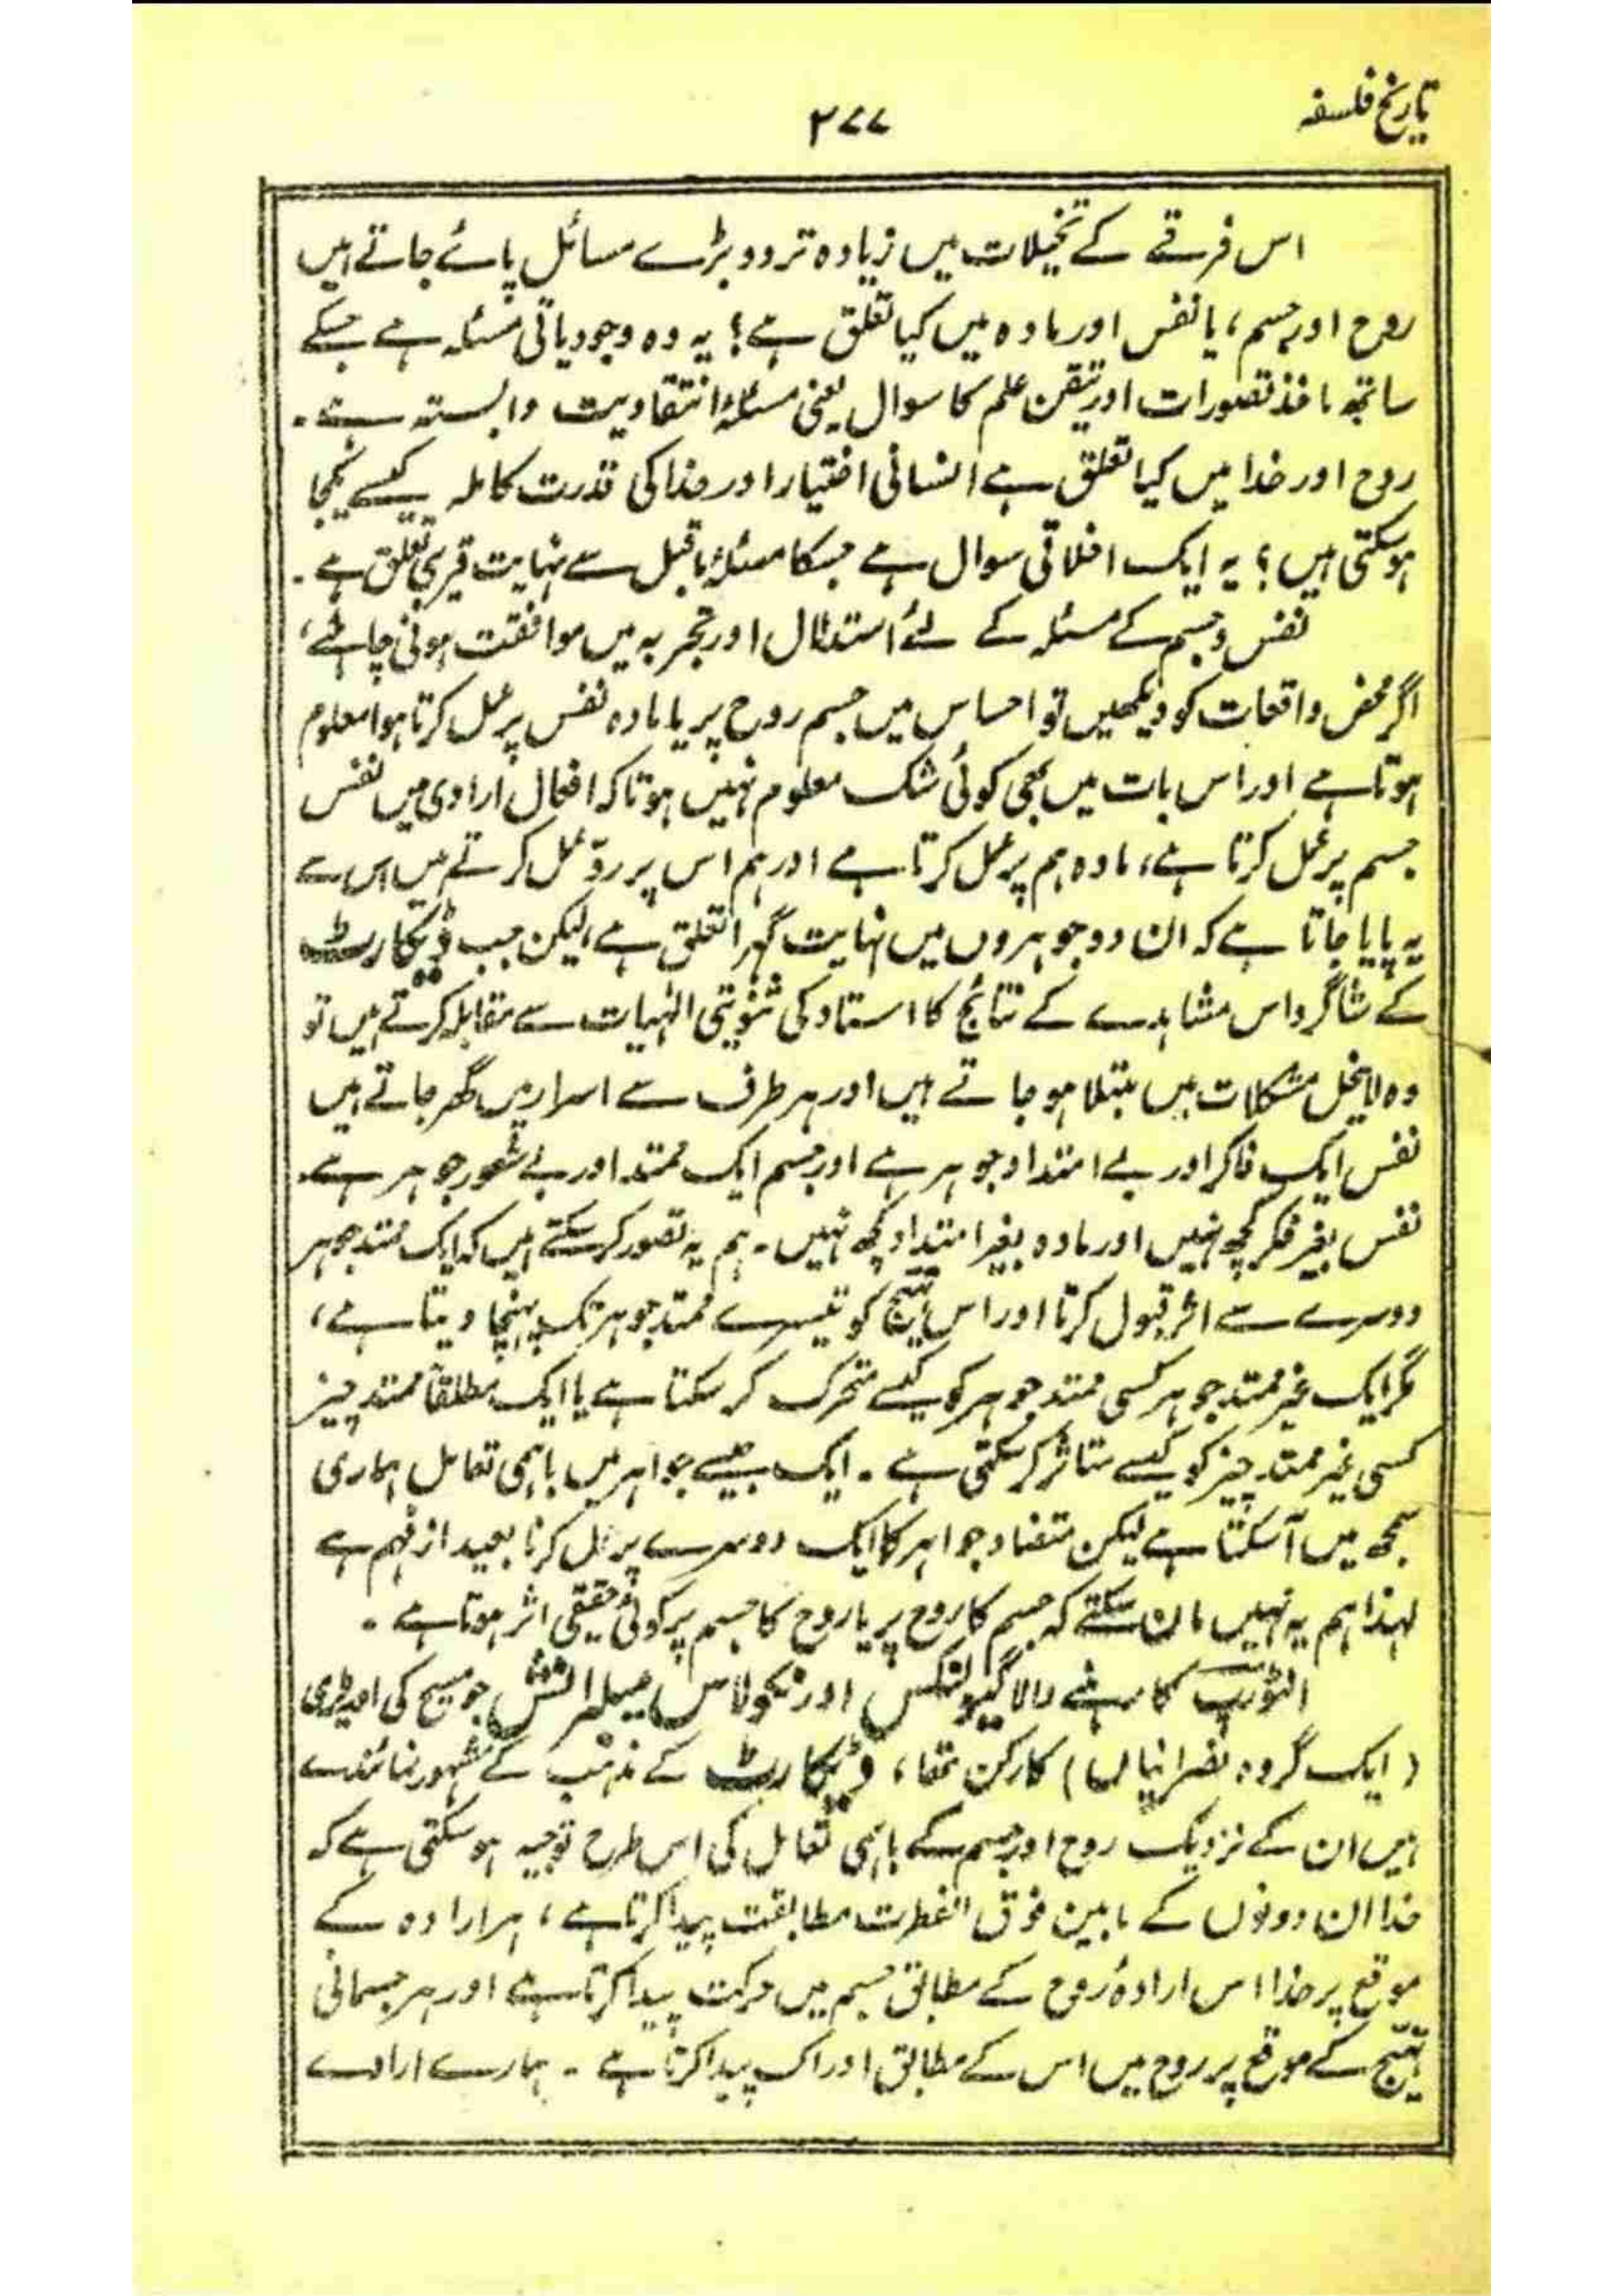 تاریخ فلسفہ
۲۷۷
اس فرقے کے تخیلات میں زیادہ تر دو بڑے مسائل پائے جاتے ہیں
روح اور جسم، یا نفس اور مادہ میں کیا تعلق ہے؟ یہ وہ وجودیاتی مسئلہ ہے جسکے
ساتھ ماخذ تصورات اور تیقن علم کا سوال یعنی مسئلۂ انتقادیت وابستہ ہے۔
روح اور خدا میں کیا تعلق ہے انسانی اختیار اور خدا کی قدرت کاملہ کیسے یکجا
ہوسکتی ہیں؟ یہ ایک اخلاقی سوال ہے جسکا مسئلۂ ماقبل سے نہایت قریبی تعلق ہے۔
نفس و جسم کے مسئلہ کے لئے استدلال اور تجربہ میں موافقت ہونی چاہئے،
اگر محض واقعات کو دیکھیں تو احساس میں جسم روح پر یا مادہ نفس پر عمل کرتا ہوا معلوم
ہوتا ہے اور اس بات میں بھی کوئی شک معلوم نہیں ہوتا کہ افعال ارادی میں نفس
جسم پر عمل کرتا ہے، مادہ ہم پر عمل کرتا ہے اور ہم اس پر ردّ عمل کرتے ہیں اس سے
یہ پایا جاتا ہے کہ ان دو جوہروں میں نہایت گہرا تعلق ہے، لیکن جب ڈیکارٹ
کے شاگرد اس مشاہدے کے نتائج کا استاد کی ثنویتی الٰہیات سے مقابلہ کرتے ہیں تو
وہ لاینحل مشکلات میں مبتلا ہو جاتے ہیں اور ہر طرف سے اسرار میں گھر جاتے ہیں
نفس ایک فاکر اور بے امتداد جوہر ہے اور جسم ایک ممتد اور بے شعور جوہر ہے۔
نفس بغیر فکر کچھ نہیں اور مادہ بغیر امتداد کچھ نہیں۔ ہم یہ تصور کرسکتے ہیں کہ ایک ممتد جوہر
دوسرے سے اثر قبول کرتا اور اس تہیج کو تیسرے ممتد جوہر تک پہنچا دیتا ہے،
مگر ایک غیر ممتد جوہر کسی ممتد جوہر کو کیسے متحرک کر سکتا ہے یا ایک مطلقاً ممتد چیز
کسی غیر ممتد چیز کو کیسے متاثر کرسکتی ہے۔ ایک جیسے جواہر میں باہمی تعامل ہماری
سمجھ میں آسکتا ہے لیکن متضاد جواہر کا ایک دوسرے پر عمل کرنا بعید از فہم ہے
لہذا ہم یہ نہیں مان سکتے کہ جسم کا روح پر یا روح کا جسم پر کوئی حقیقی اثر ہوتا ہے۔
انٹورپ کا رہنے والا گیولنکس اور نکولاس میلبرانش جو مسیح کی اوریٹری
(ایک گروہ نصرانیاں) کا رکن تھا، ڈیکارٹ کے مذہب کے مشہور نمائندے
ہیں ان کے نزدیک روح اور جسم کے باہمی تعامل کی اس طرح توجیہ ہوسکتی ہے کہ
خدا ان دونوں کے مابین فوق الفطرت مطابقت پیدا کرتا ہے، ہر ارادہ کے
موقع پر خدا اس ارادۂ روح کے مطابق جسم میں حرکت پیدا کرتا ہے اور ہر جسمانی
تہیج کے موقع پر روح میں اس کے مطابق ادراک پیدا کرتا ہے۔ ہمارے ارادے